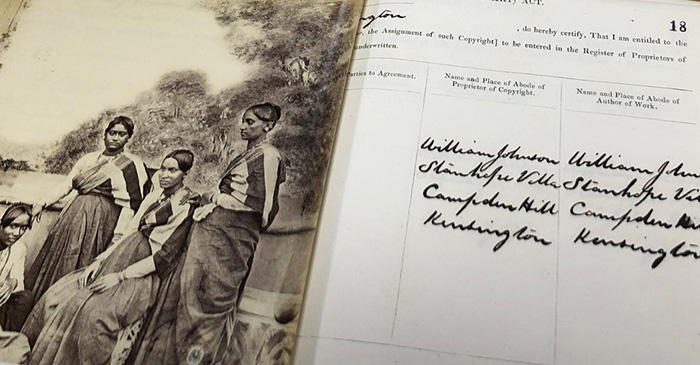 ACT.
18
ngton
, do hereby certify, That I am entitled to the
the Assignment of such Copyright] to be entered in the Register of Proprietors of
underwritten.
Parties to Agreement.
Name and Place of Abode of
Proprietor of Copyright.
Name and Place of Abode of
Author of Work.
William Johnson
Stanhope Villa
Campden Hill
Kensington
William John
Stanhope Vil
Campden H
Kensington